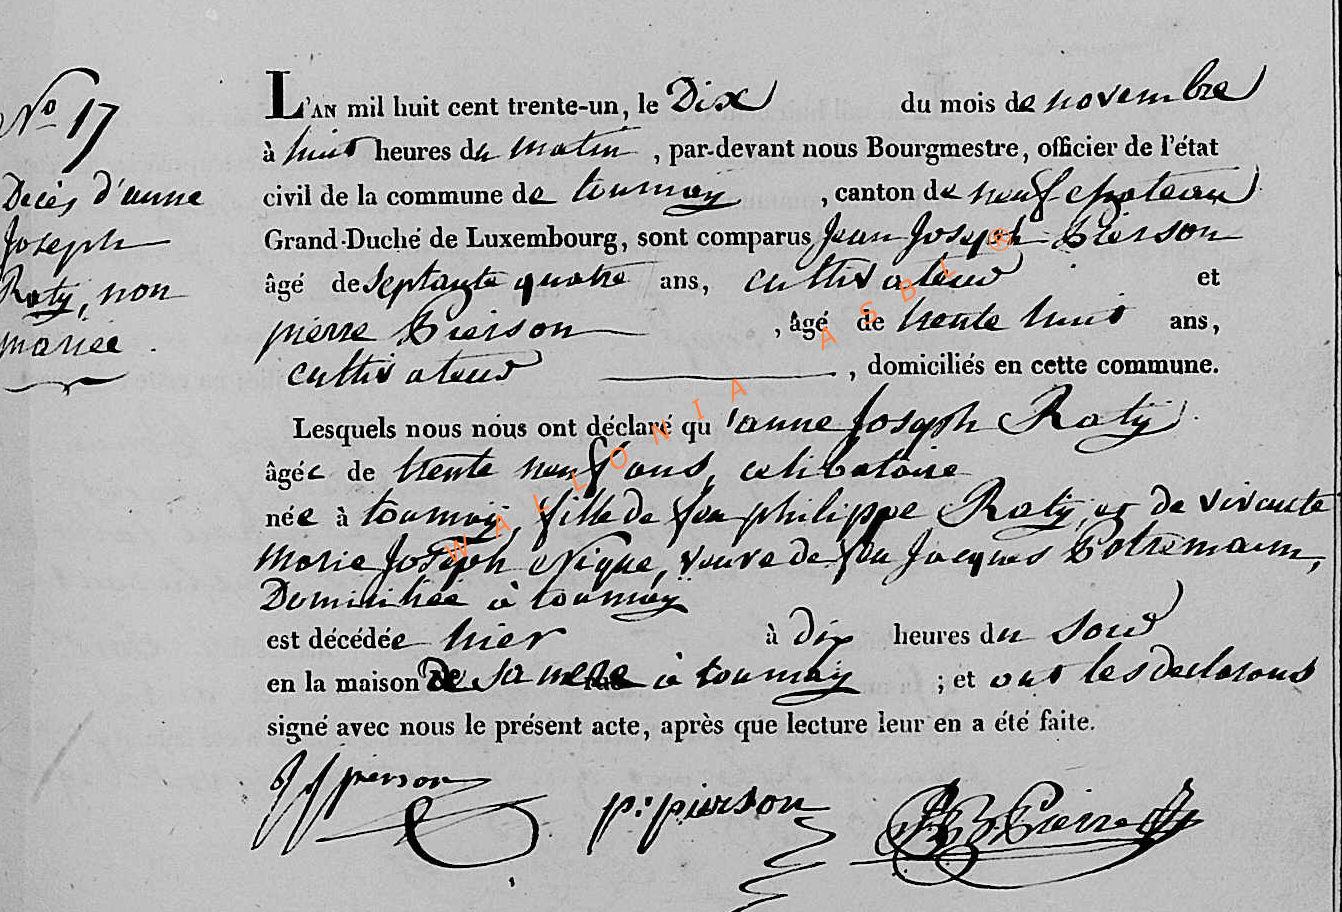 No 17
Décès d'anne
Joseph
Raty, non
mariée.
L'AN mil huit cent trente-un, le Dix du mois de novembre
à huit heures du matin, par-devant nous Bourgmestre, officier de l'état
civil de la commune de tournay, canton de neufchateau
Grand-Duché de Luxembourg, sont comparus Jean Joseph Pierson
âgé de septante quatre ans, cultivateur et
pierre Pierson, âgé de trente huit ans,
cultivateur, domiciliés en cette commune.
Lesquels nous nous ont déclaré qu'anne Joseph Raty
âgée de trente neuf ans, celibataire
née à tournay, fille de feu philippe Raty, et de vivante
marie Joseph Nique, veuve de feu Jacques Potremann,
Domiciliée à tournay
est décédée hier à dix heures du soir
en la maison de sa mere à tournay ; et ont les declarans
signé avec nous le présent acte, après que lecture leur en a été faite.
J J pierson
p: pierson
Pierret
WALLONIA ASBL ®